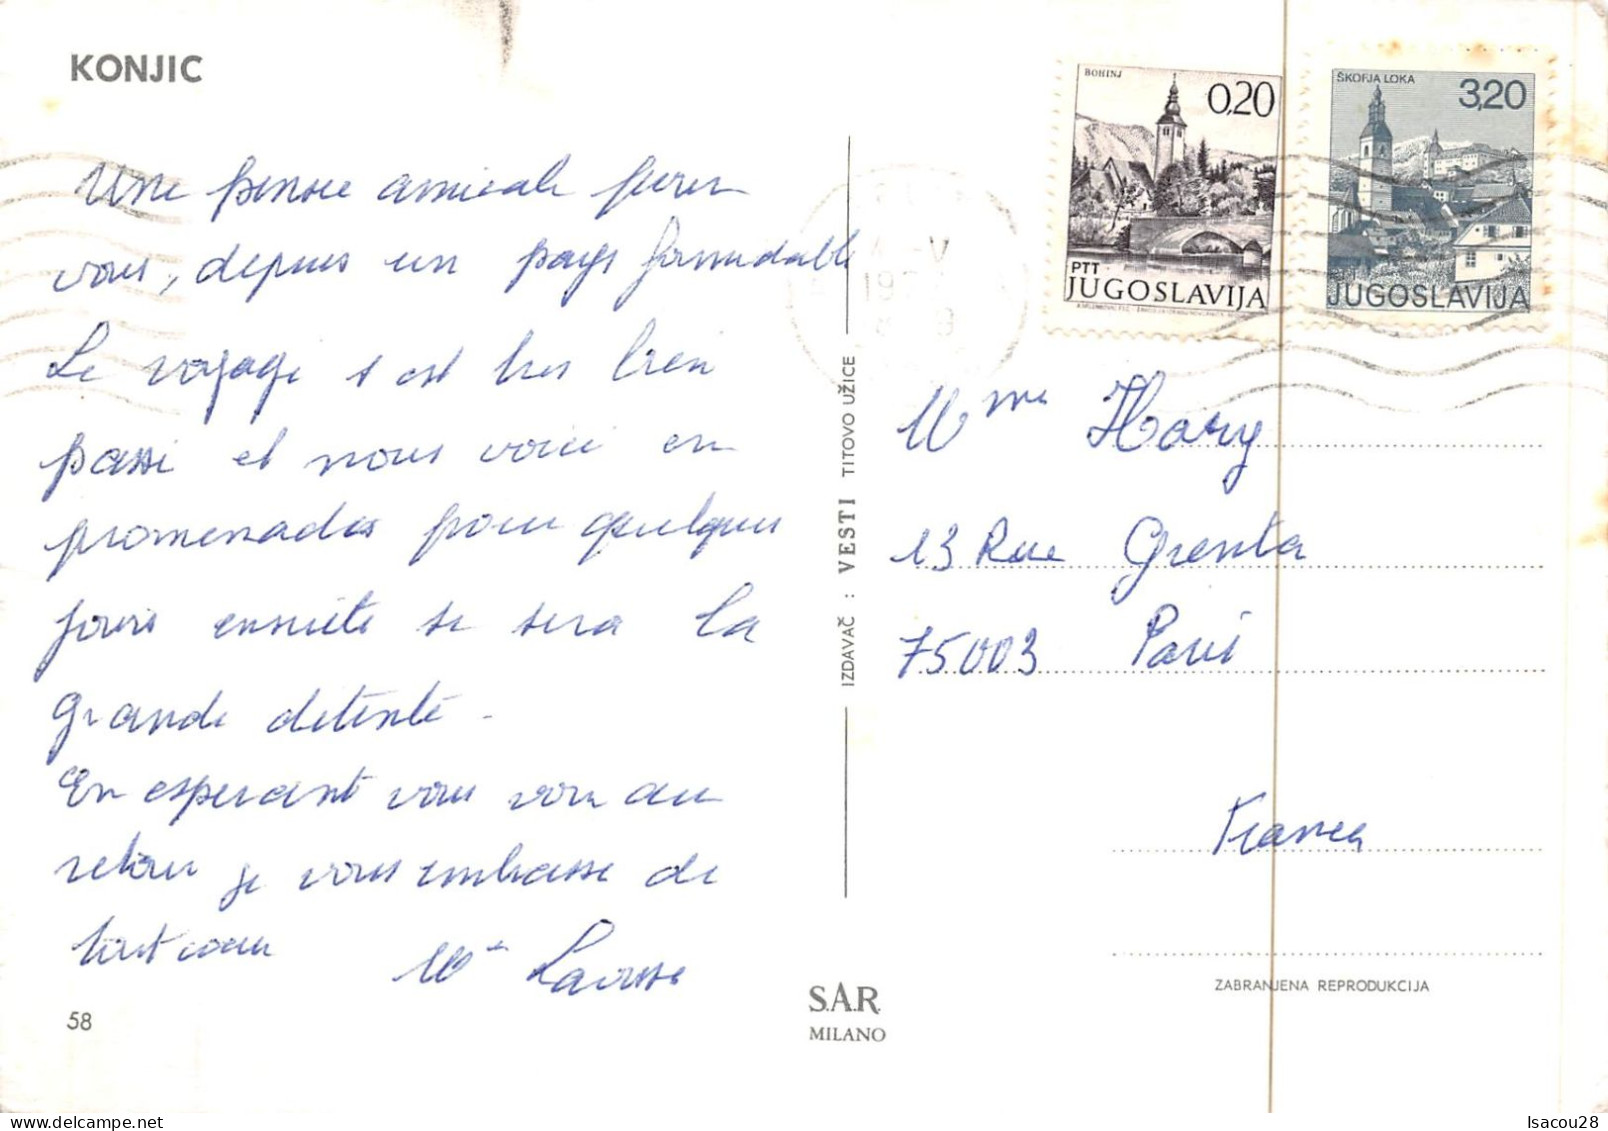 KONJIC
Une pensee amicale pour
vous, depuis un pays formidable
Le voyage s'est tres bien
passé et nous voici en
promenades pour quelques
jours ensuite se sera la
grande détente -
En esperant vous voir au
retour je vous embrasse de
tout coeur
58
IZDAVAČ : VESTI TITOVO UŽICE
S.A.R.
MILANO
BOHINJ
0,20
PTT
JUGOSLAVIJA
ŠKOFJA LOKA
3,20
JUGOSLAVIJA
Mme Hary
13 Rue
75003 Paris
France
ZABRANJENA REPRODUKCIJA
Isacou28